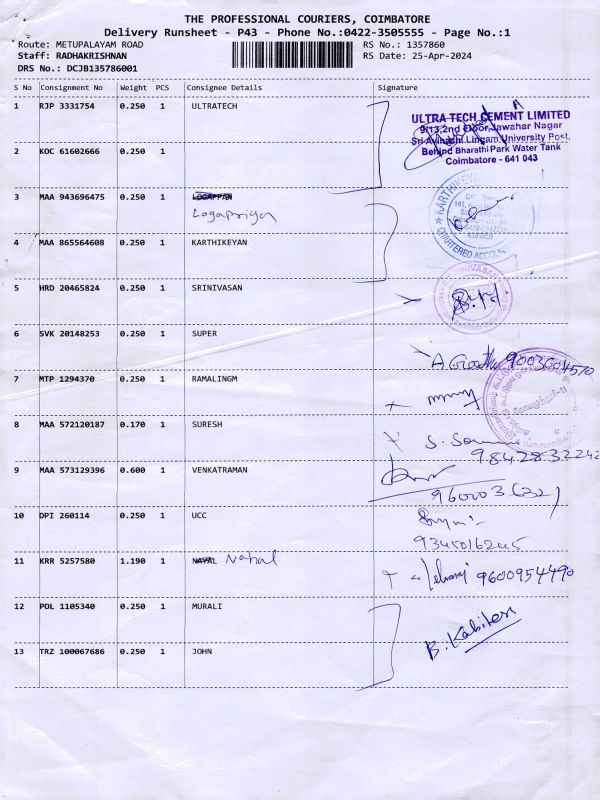 THE PROFESSIONAL COURIERS, COIMBATORE
Delivery Runsheet - P43 - Phone No.:0422-3505555 - Page No.:1
Route: METUPALAYAM ROAD
RS No.: 1357860
Staff: RADHAKRISHNAN
RS Date: 25-Apr-2024
DRS No.: DCJB135786001
S No Consignment No Weight PCS Consignee Details Signature
1 RJP 3331754 0.250 1 ULTRATECH
ULTRA TECH CEMENT LIMITED
9/13,2nd Floor, Jawahar Nagar
Sri Avinashi Lingam University Post,
Behind Bharathi Park Water Tank
Coimbatore - 641 043
2 KOC 61602666 0.250 1
3 MAA 943696475 0.250 1 LOGAPPAN
Logapriya
KARTHIKEYA
CHARTERED ACCOU
4 MAA 865564608 0.250 1 KARTHIKEYAN
5 HRD 20465824 0.250 1 SRINIVASAN
SRINIVASAN
6 SVK 20148253 0.250 1 SUPER
9003604570
7 MTP 1294370 0.250 1 RAMALINGM
8 MAA 572120187 0.170 1 SURESH
9842832242
9 MAA 573129396 0.600 1 VENKATRAMAN
10 DPI 260114 0.250 1 UCC
11 KRR 5257580 1.190 1 NAHAL Nahal
9600954490
12 POL 1105340 0.250 1 MURALI
B. Kabilesh
13 TRZ 100067686 0.250 1 JOHN